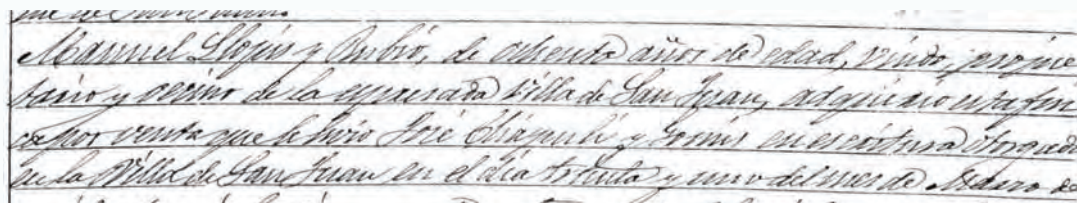 Manuel Llopis y Rubió, de ochenta años de edad, viudo, propie
tario y vecino de la expresada Villa de San Juan, adquirió esta fin
ca por venta que le hizo José Chápuli y Gomis en escritura otorgada
en la Villa de San Juan en el día treinta y uno del mes de Marzo de